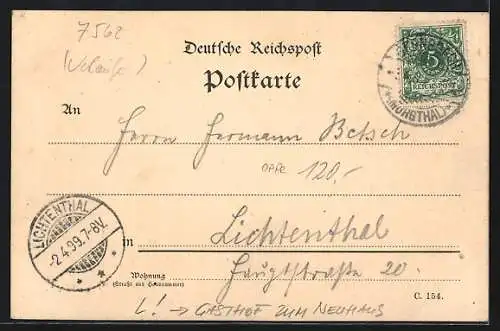 7562
Deutsche Reichspost
Postkarte
5
REICHSPOST
(MURGTHAL)
An
Herrn Hermann Betsch
OPPE 120,-
LICHTENTHAL
-2.4.99.7-8V.
in Lichtenthal
Wohnung
(Straße und Hausnummer)
Hauptstraße 20.
C. 154.
L! → GASTHOF ZUM NEUHAUS